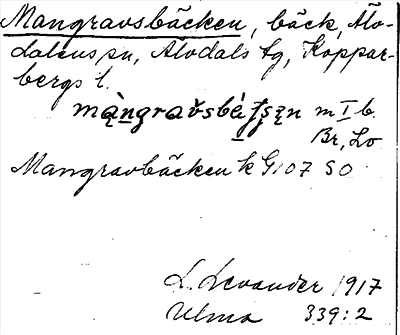 Mangravsbäcken, bäck, Älv-
dalens sn, Älvdals tg, Koppar-
bergs l.
m I b.
Br, Lo
Mangravbäcken k G107 SO
L. Levander 1917
Ulma 339:2